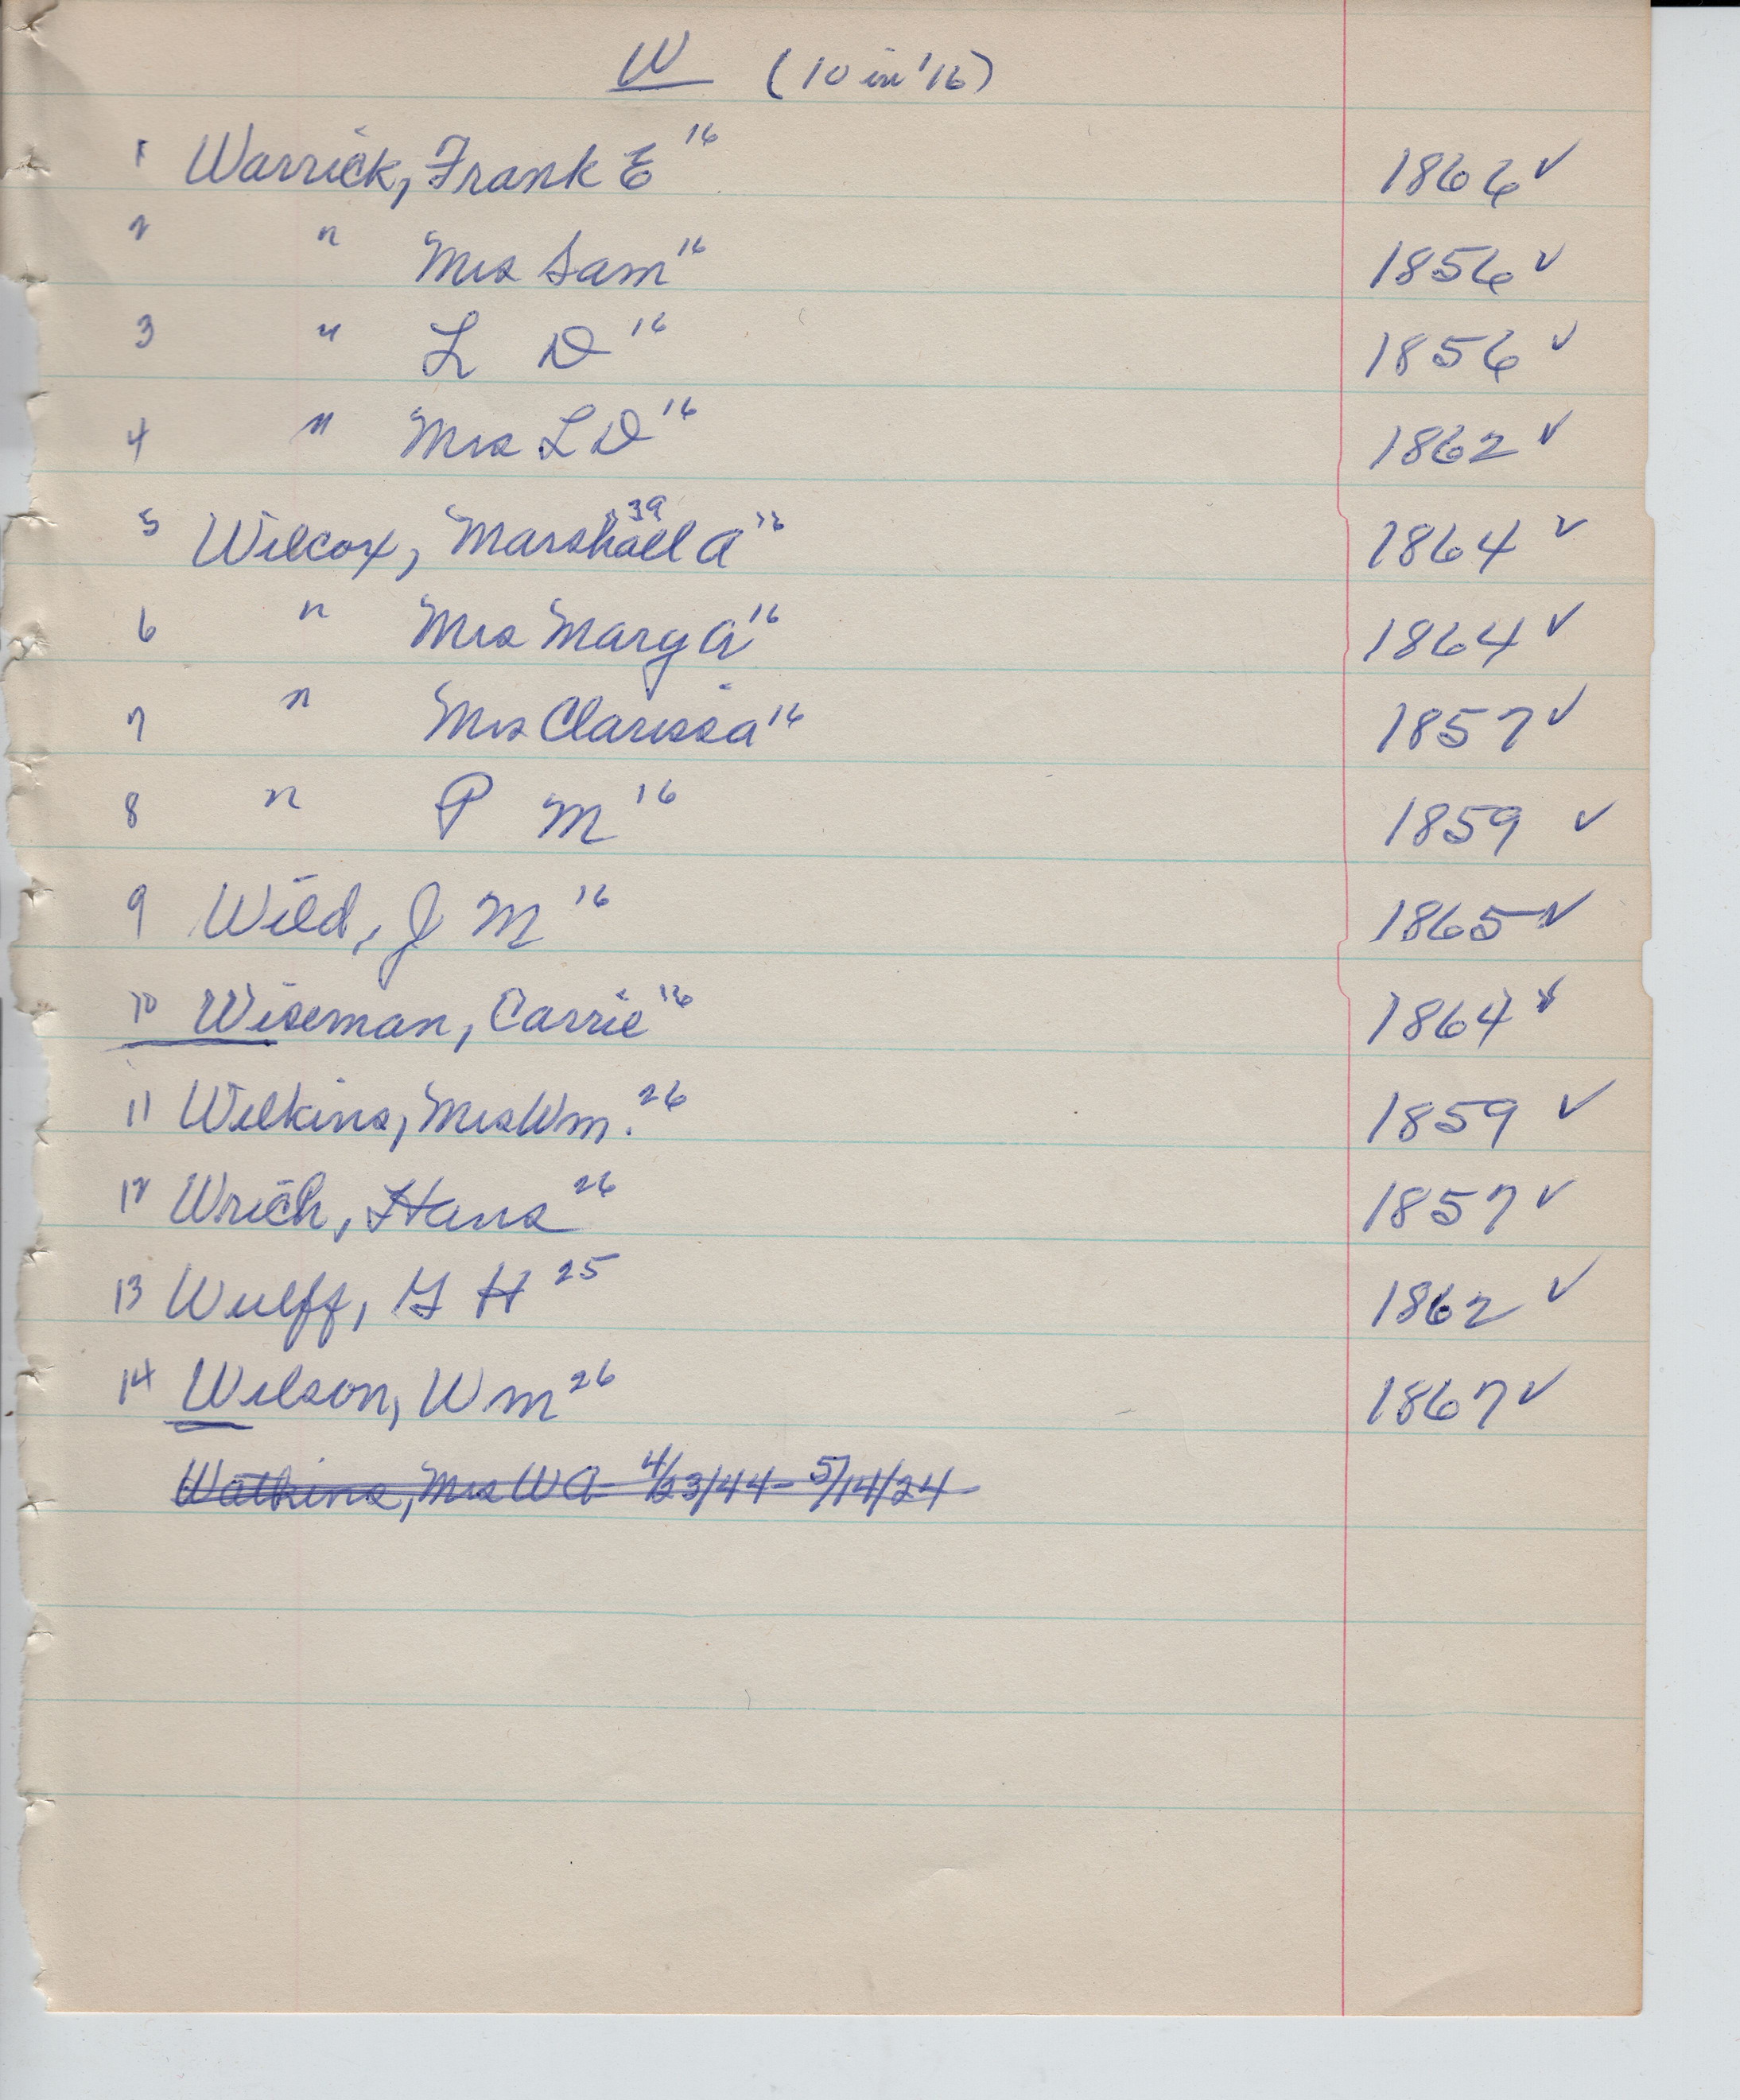 W (10 in '16)
1 Warrick, Frank E 16 1866 ✓
2 " Mrs Sam 16 1856 ✓
3 " L D 16 1856 ✓
4 " Mrs L D 16 1862 ✓
5 Wilcox, Marshall A 39 16 1864 ✓
6 " Mrs Mary A 16 1864 ✓
7 " Mrs Clarissa 16 1857 ✓
8 " P M 16 1859 ✓
9 Wild, J M 16 1865 ✓
10 Wiseman, Carrie 16 1864 ✓
11 Wilkins, Mrs Wm. 26 1859 ✓
12 Wrich, Hans 26 1857 ✓
13 Wulff, G H 25 1862 ✓
14 Wilson, Wm 26 1867 ✓
Watkins, Mrs W A - 4/23/44 - 5/14/24